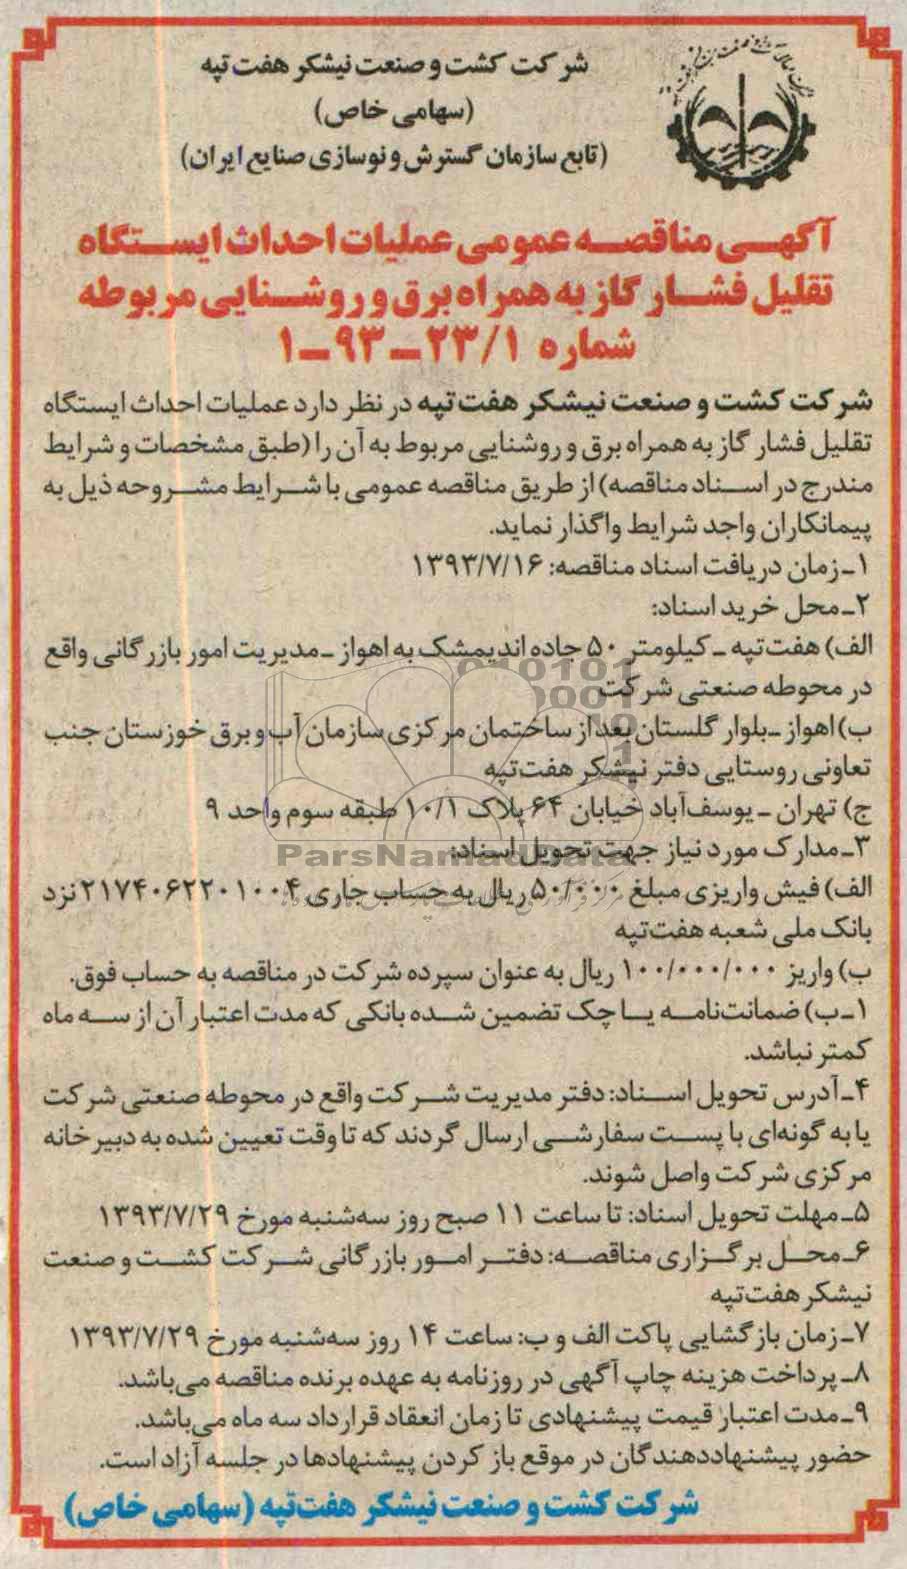 شرکت کشت و صنعت نیشکر هفت تپه
(سهامی خاص)
(تابع سازمان گسترش و نوسازی صنایع ایران)
آگهی مناقصه عمومی عملیات احداث ایستگاه
تقلیل فشار گاز به همراه برق و روشنایی مربوطه
شماره ۲۳/۱-۹۳-۱
شرکت کشت و صنعت نیشکر هفت تپه در نظر دارد عملیات احداث ایستگاه
تقلیل فشار گاز به همراه برق و روشنایی مربوط به آن را (طبق مشخصات و شرایط
مندرج در اسناد مناقصه) از طریق مناقصه عمومی با شرایط مشروحه ذیل به
پیمانکاران واجد شرایط واگذار نماید.
۱ـ زمان دریافت اسناد مناقصه: ۱۳۹۳/۷/۱۶
۲ـ محل خرید اسناد:
الف) هفت‌تپه ـ کیلومتر ۵۰ جاده اندیمشک به اهواز ـ مدیریت امور بازرگانی واقع
در محوطه صنعتی شرکت
ب) اهواز ـ بلوار گلستان بعد از ساختمان مرکزی سازمان آب و برق خوزستان جنب
تعاونی روستایی دفتر نیشکر هفت‌تپه
ج) تهران ـ یوسف‌آباد خیابان ۶۴ پلاک ۱۰/۱ طبقه سوم واحد ۹
۳ـ مدارک مورد نیاز جهت تحویل اسناد:
ParsNamadData
الف) فیش واریزی مبلغ ۵۰/۰۰۰ ریال به حساب جاری ۲۱۷۴۰۶۲۲۰۱۰۰۴ نزد
بانک ملی شعبه هفت‌تپه
ب) واریز ۱۰۰/۰۰۰/۰۰۰ ریال به عنوان سپرده شرکت در مناقصه به حساب فوق.
۱ـ ب) ضمانت‌نامه یا چک تضمین شده بانکی که مدت اعتبار آن از سه ماه
کمتر نباشد.
۴ـ آدرس تحویل اسناد: دفتر مدیریت شرکت واقع در محوطه صنعتی شرکت
یا به گونه‌ای با پست سفارشی ارسال گردند که تا وقت تعیین شده به دبیرخانه
مرکزی شرکت واصل شوند.
۵ـ مهلت تحویل اسناد: تا ساعت ۱۱ صبح روز سه‌شنبه مورخ ۱۳۹۳/۷/۲۹
۶ـ محل برگزاری مناقصه: دفتر امور بازرگانی شرکت کشت و صنعت
نیشکر هفت‌تپه
۷ـ زمان بازگشایی پاکت الف و ب: ساعت ۱۴ روز سه‌شنبه مورخ ۱۳۹۳/۷/۲۹
۸ـ پرداخت هزینه چاپ آگهی در روزنامه به عهده برنده مناقصه می‌باشد.
۹ـ مدت اعتبار قیمت پیشنهادی تا زمان انعقاد قرارداد سه ماه می‌باشد.
حضور پیشنهاددهندگان در موقع باز کردن پیشنهادها در جلسه آزاد است.
شرکت کشت و صنعت نیشکر هفت‌تپه (سهامی خاص)